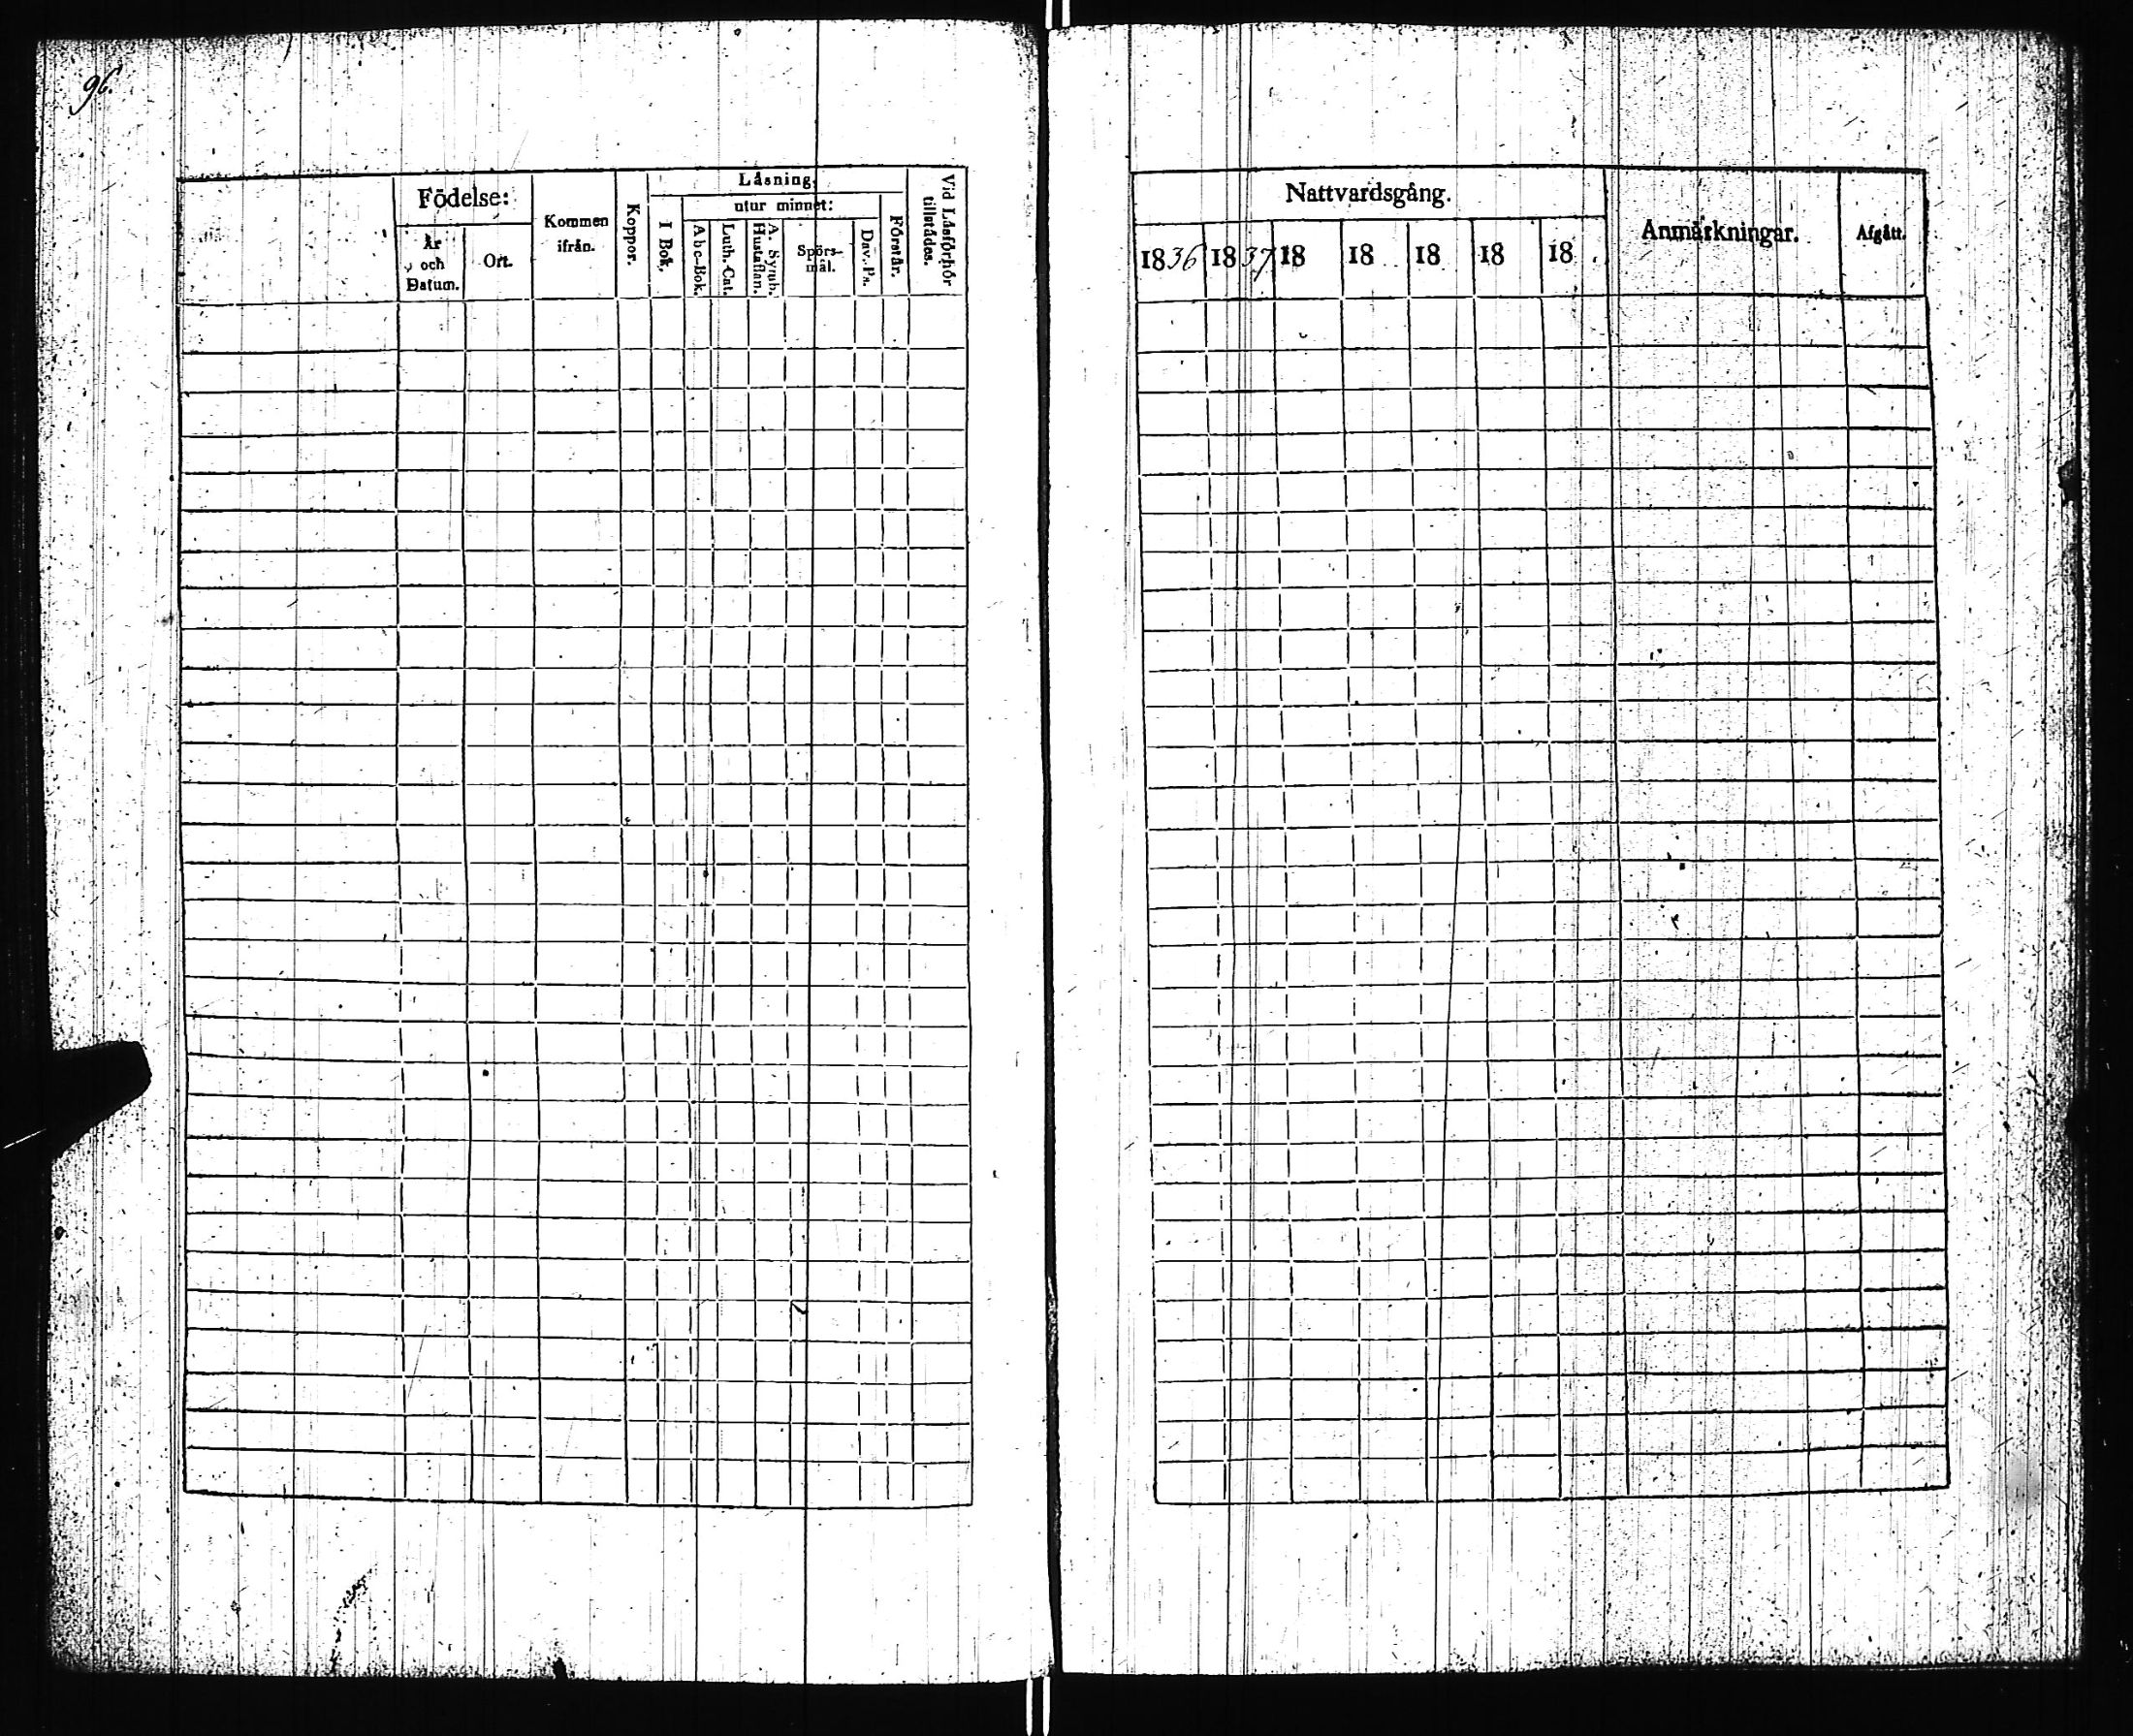 96.
Födelse:
År
och
Datum.
Ort.
Kommen
ifrån.
Koppor.
Låsning.
I Bok,
utur minnet:
Abc-Bok.
Luth. Cat.
A. Symb.
Hustaflan.
Spörs-
mål.
Dav. Ps.
Förstår.
Vid Låsförhör
tillstådes.
Nattvardsgång.
1836
1837
18
18
18
18
18
Anmärkningar.
Afgått.